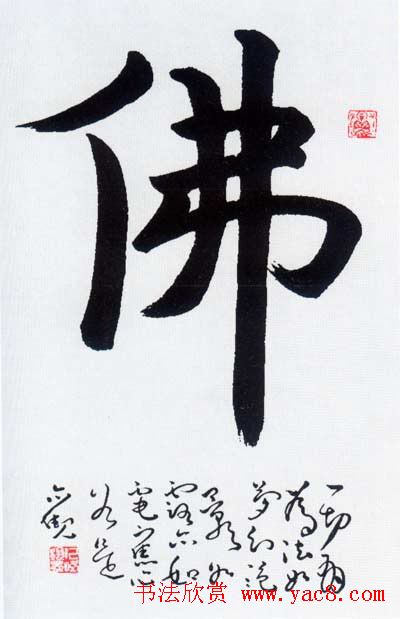 佛
一切有
為法如
夢幻泡
影如
露亦如
電應作
如是
觀
书法欣赏 www.yac8.com